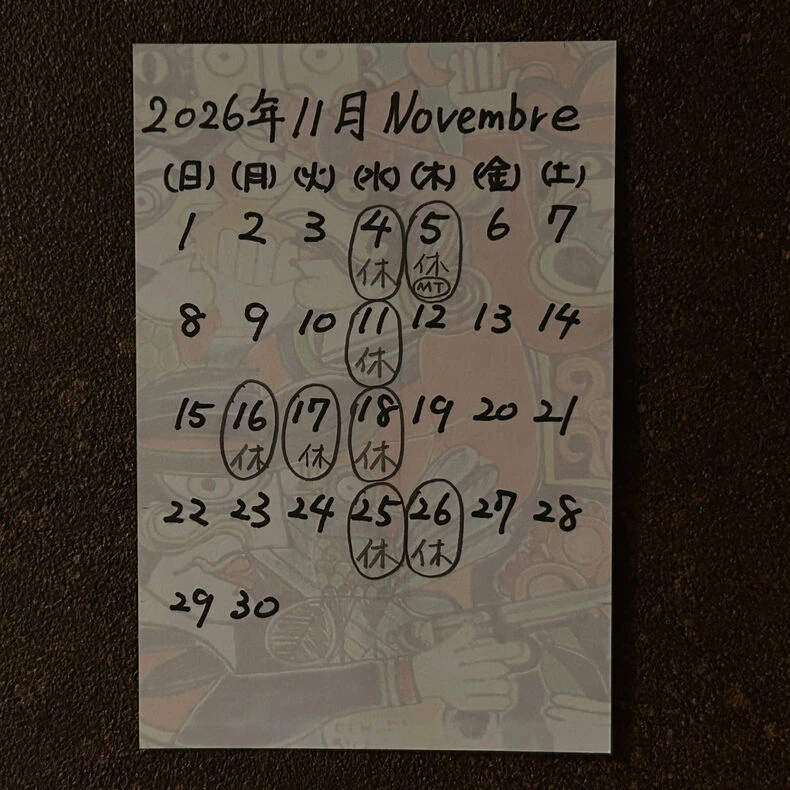 2026年11月 Novembre
(日) (月) (火) (水) (木) (金) (土)
1 2 3 4 5 6 7
休 休
MT
8 9 10 11 12 13 14
休
15 16 17 18 19 20 21
休 休 休
22 23 24 25 26 27 28
休 休
29 30